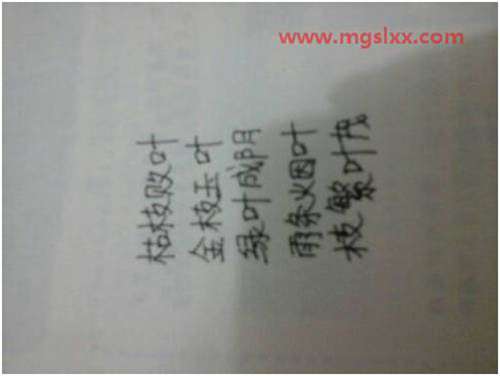 www.mgslxx.com
枯枝败叶
金枝玉叶
绿叶成阴
雨条烟叶
枝繁叶茂